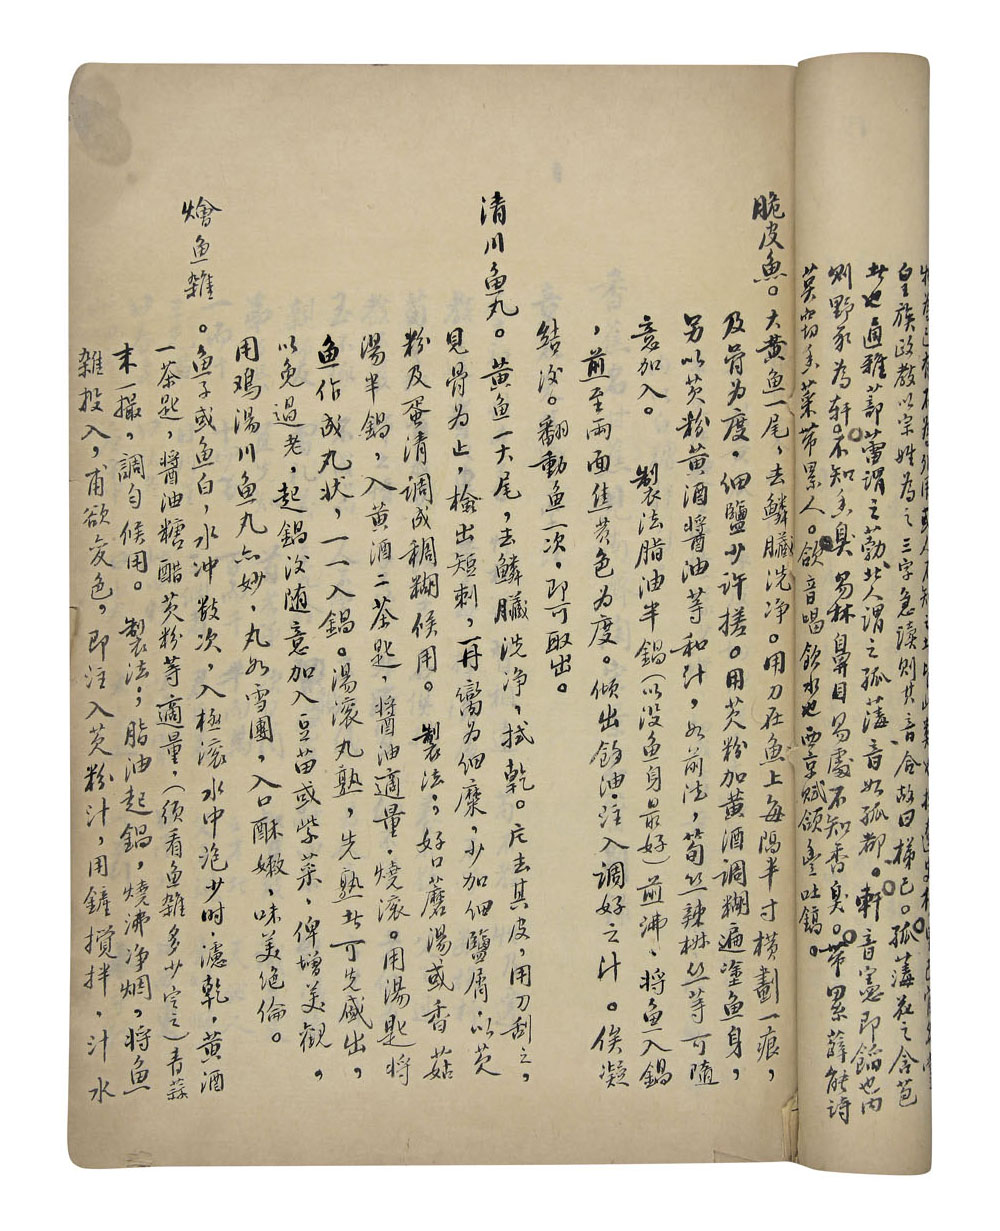 皇族政教以宗姓為之三字急讀則其音合故曰梯已。孤䔖花之含苞
者也通雅蔀䔖謂之蔋北人謂之孤䔖音如孤都。軒音憲即餡也內
則野豕為軒。不知香臭易林鼻目易處不知香臭。帶累薛能詩
莫窃香菜帶累人。欱音喝飲水也西京賦欱灃吐鎬。
脆皮魚。大黃魚一尾，去鱗臟洗净。用刀在魚上每隔半寸橫劃一痕，
及骨為度，細鹽少許搓。用芡粉加黃酒調糊遍塗魚身，
另以芡粉黃酒醬油等和汁，如前法，筍丝辣椒丝等可隨
意加入。 製法脂油半鍋（以没魚身最好）煎沸、將魚入鍋
，煎至兩面焦黃色為度。傾出餘油，注入調好之汁。俟凝
結後。翻動魚一次，即可取出。
清川魚丸。黃魚一大尾，去鱗臟洗净，拭乾。片去其皮，用刀刮之，
見骨為止，檢出短刺，再臠為細糜，少加細鹽屑，以芡
粉及蛋清調成稠糊候用。 製法：好口蘑湯或香菇
湯半鍋，入黃酒二茶匙，醬油適量，燒滚。用湯匙將
魚作成丸狀，一一入鍋。湯滚丸熟，先熟者可先盛出，
以免過老，起鍋後随意加入豆苗或紫菜，俾增美觀，
用鸡湯川魚丸亦妙，丸如雪團，入口酥嫩，味美绝倫。
燴魚雜。魚子或魚白，水冲數次，入極滚水中泡少时，濾乾，黃酒
一茶匙，醬油糖醋芡粉等適量，（須看魚雜多少定之）青蒜
末一撮，調匀候用。 製法：脂油起鍋，燒沸净烟，將魚
雜投入，甫欲变色，即注入芡粉汁，用鏟搅拌，汁水